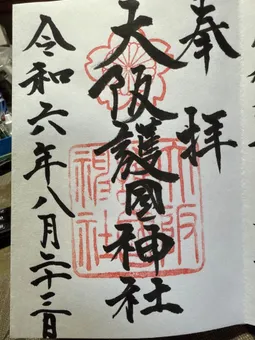 奉拝
大阪護國神社
令和六年八月二十三日
大阪
神社